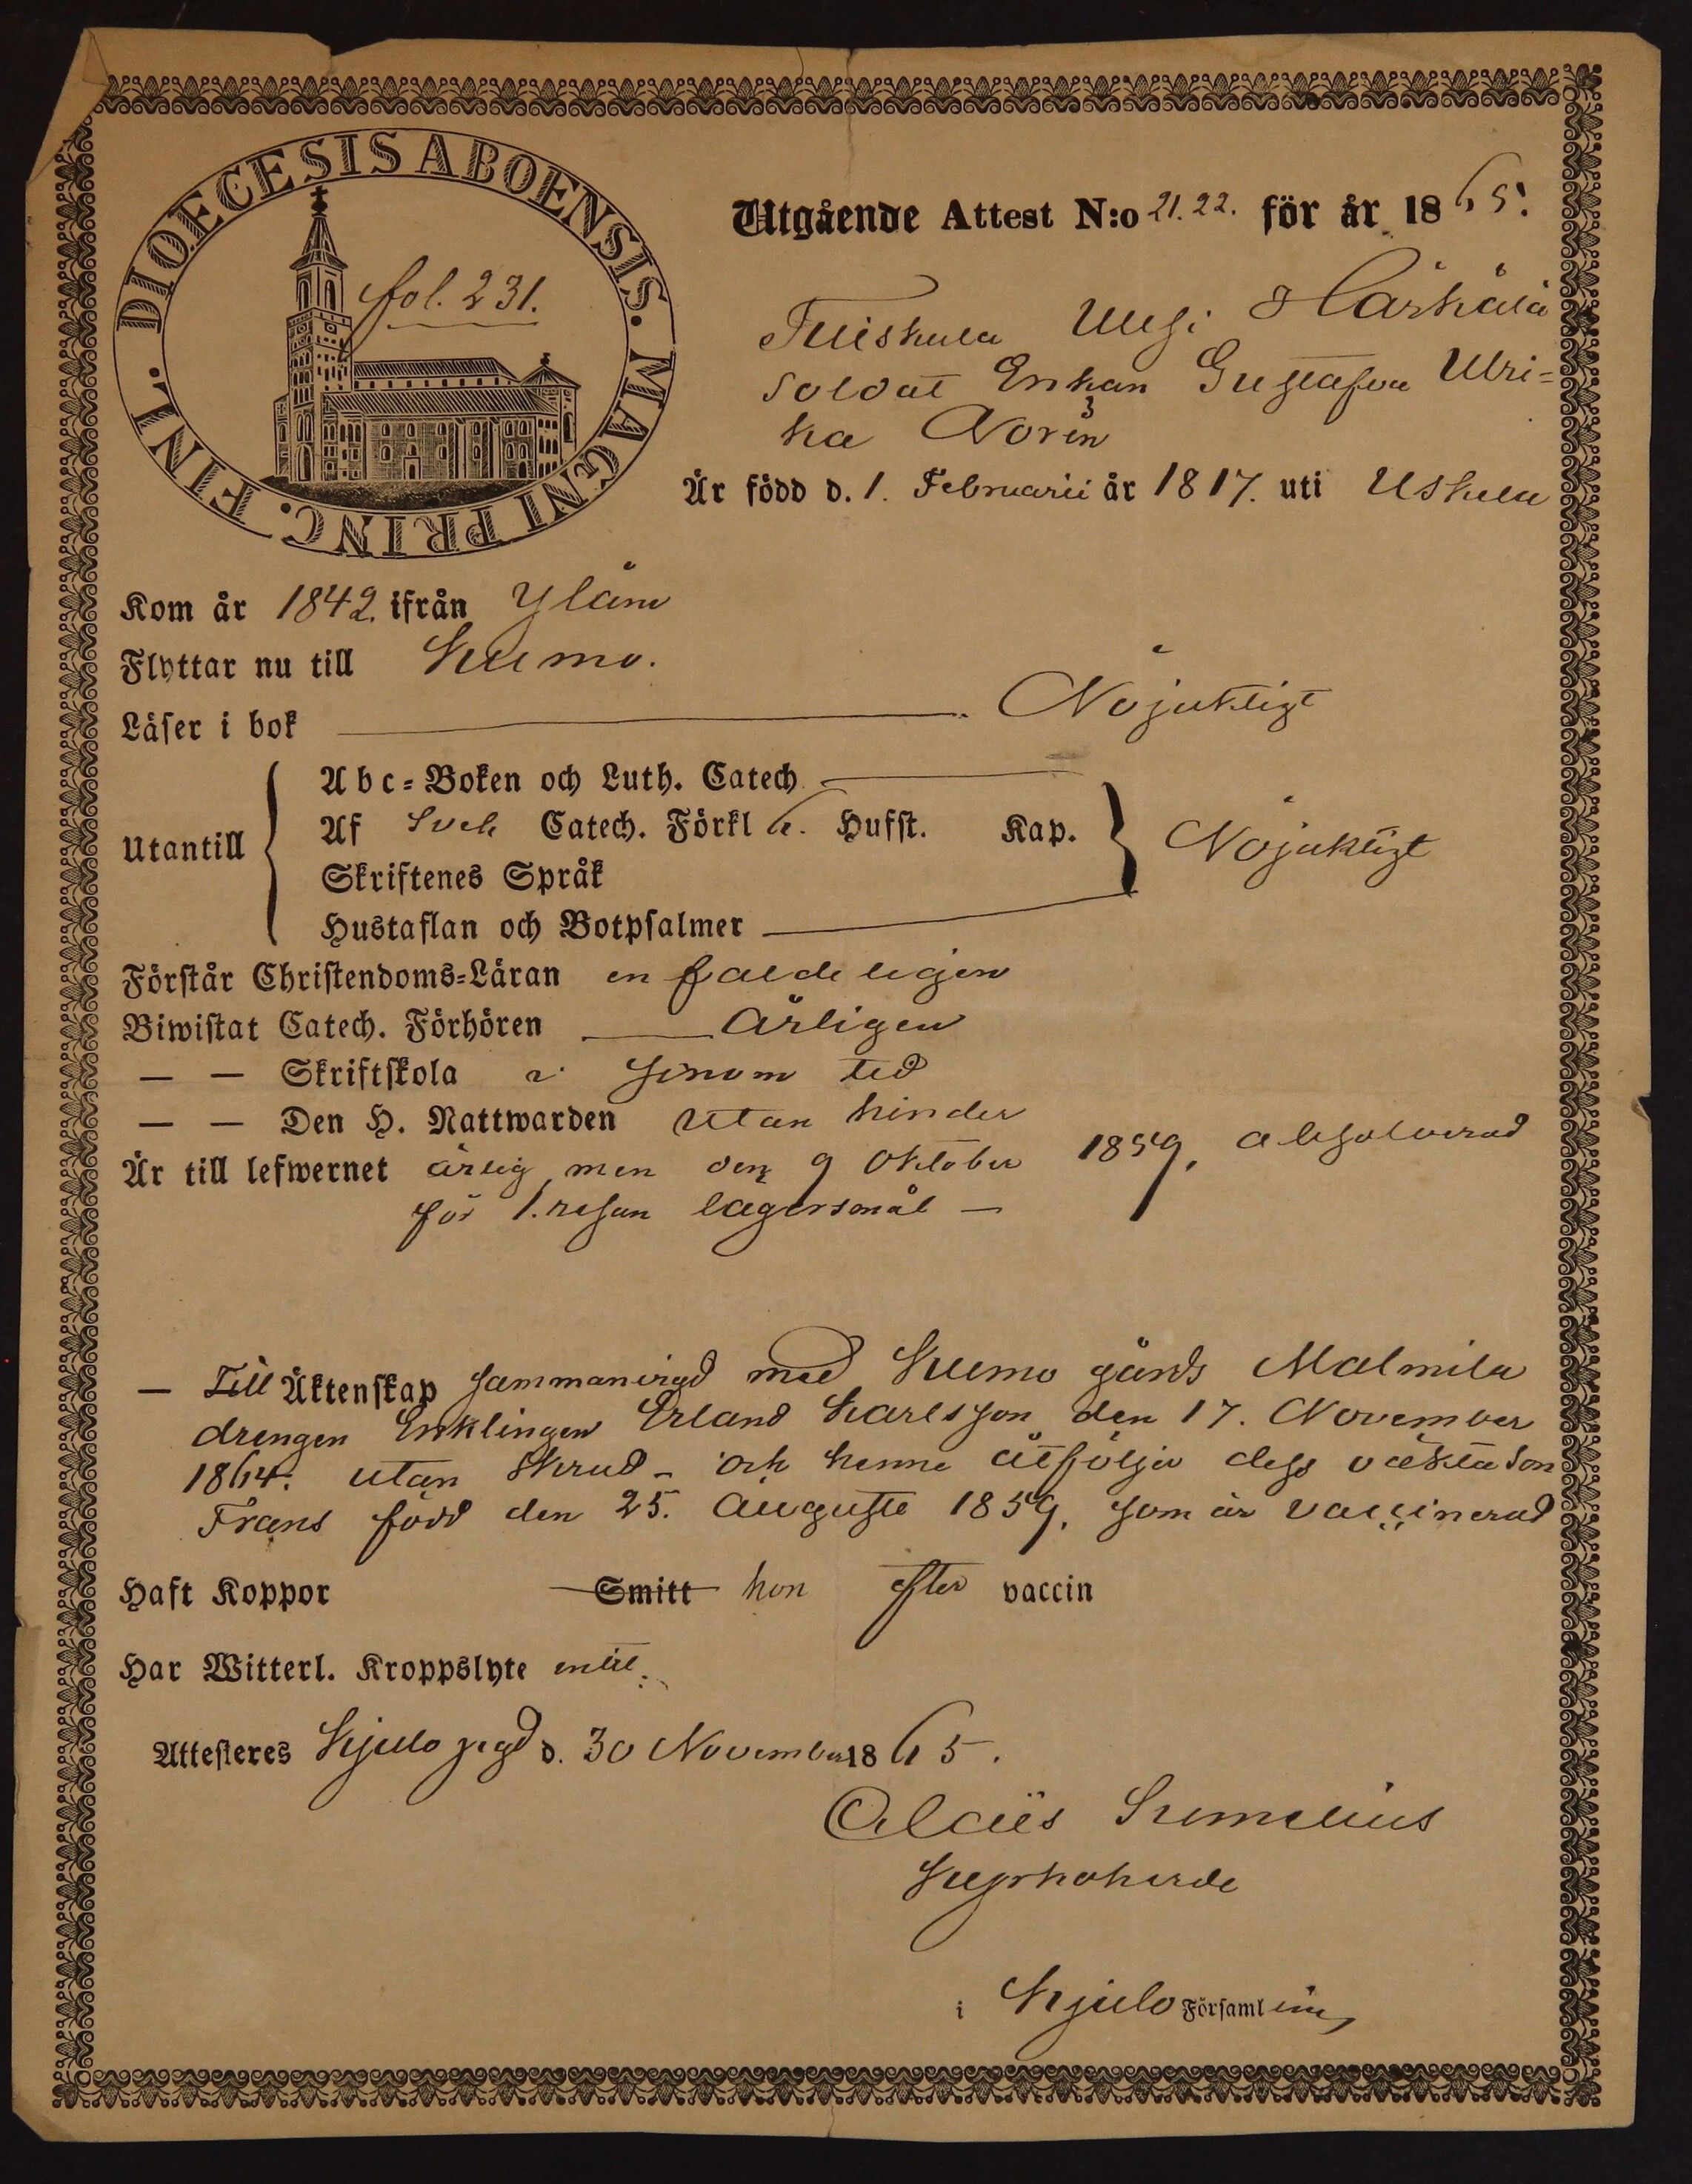 DIOECESIS ABOENSIS. MAGNI PRINC. FINL.
fol. 231.
Utgående Attest N:o 21. 22. för år 1865.
Tuiskula Uusi Härkälä
Soldat Enkan Gustafva Ulri=
ka Norén
Är född d. 1. Februarii år 1817. uti Uskela
Kom år 1842. ifrån Yläne
Flyttar nu till Kumo.
Läser i bok Nöjaktigt
Utantill
Abc=Boken och Luth. Catech.
Af Sveb Catech. Förkl 6. Hufst. Kap. Nöjaktigt
Skriftenes Språk
Hustaflan och Botpsalmer
Förstår Christendoms=Läran enfaldeligen
Biwistat Catech. Förhören årligen
— — Skriftskola i sinom tid
— — Den H. Nattwarden utan hinder
Är till lefwernet ärlig, men den 9 Oktober 1859, absolverad
för 1. resan lägersmål —
— Till Äktenskap sammanvigd med Kumo gårds Malmila
drengen Enklingen Erland Karlsson den 17. November
1864. utan Skrud - och henne åtföljer dess oäkta Son
Frans född den 25. Augusti 1859, som är vaccinerad
Haft Koppor Smitt hon efter vaccin
Har Witterl. Kroppslyte intet.
Attesteres Kjulo pgd d. 30 November 1865.
Kumelius
Kyrkoherde
i Kjulo Församling